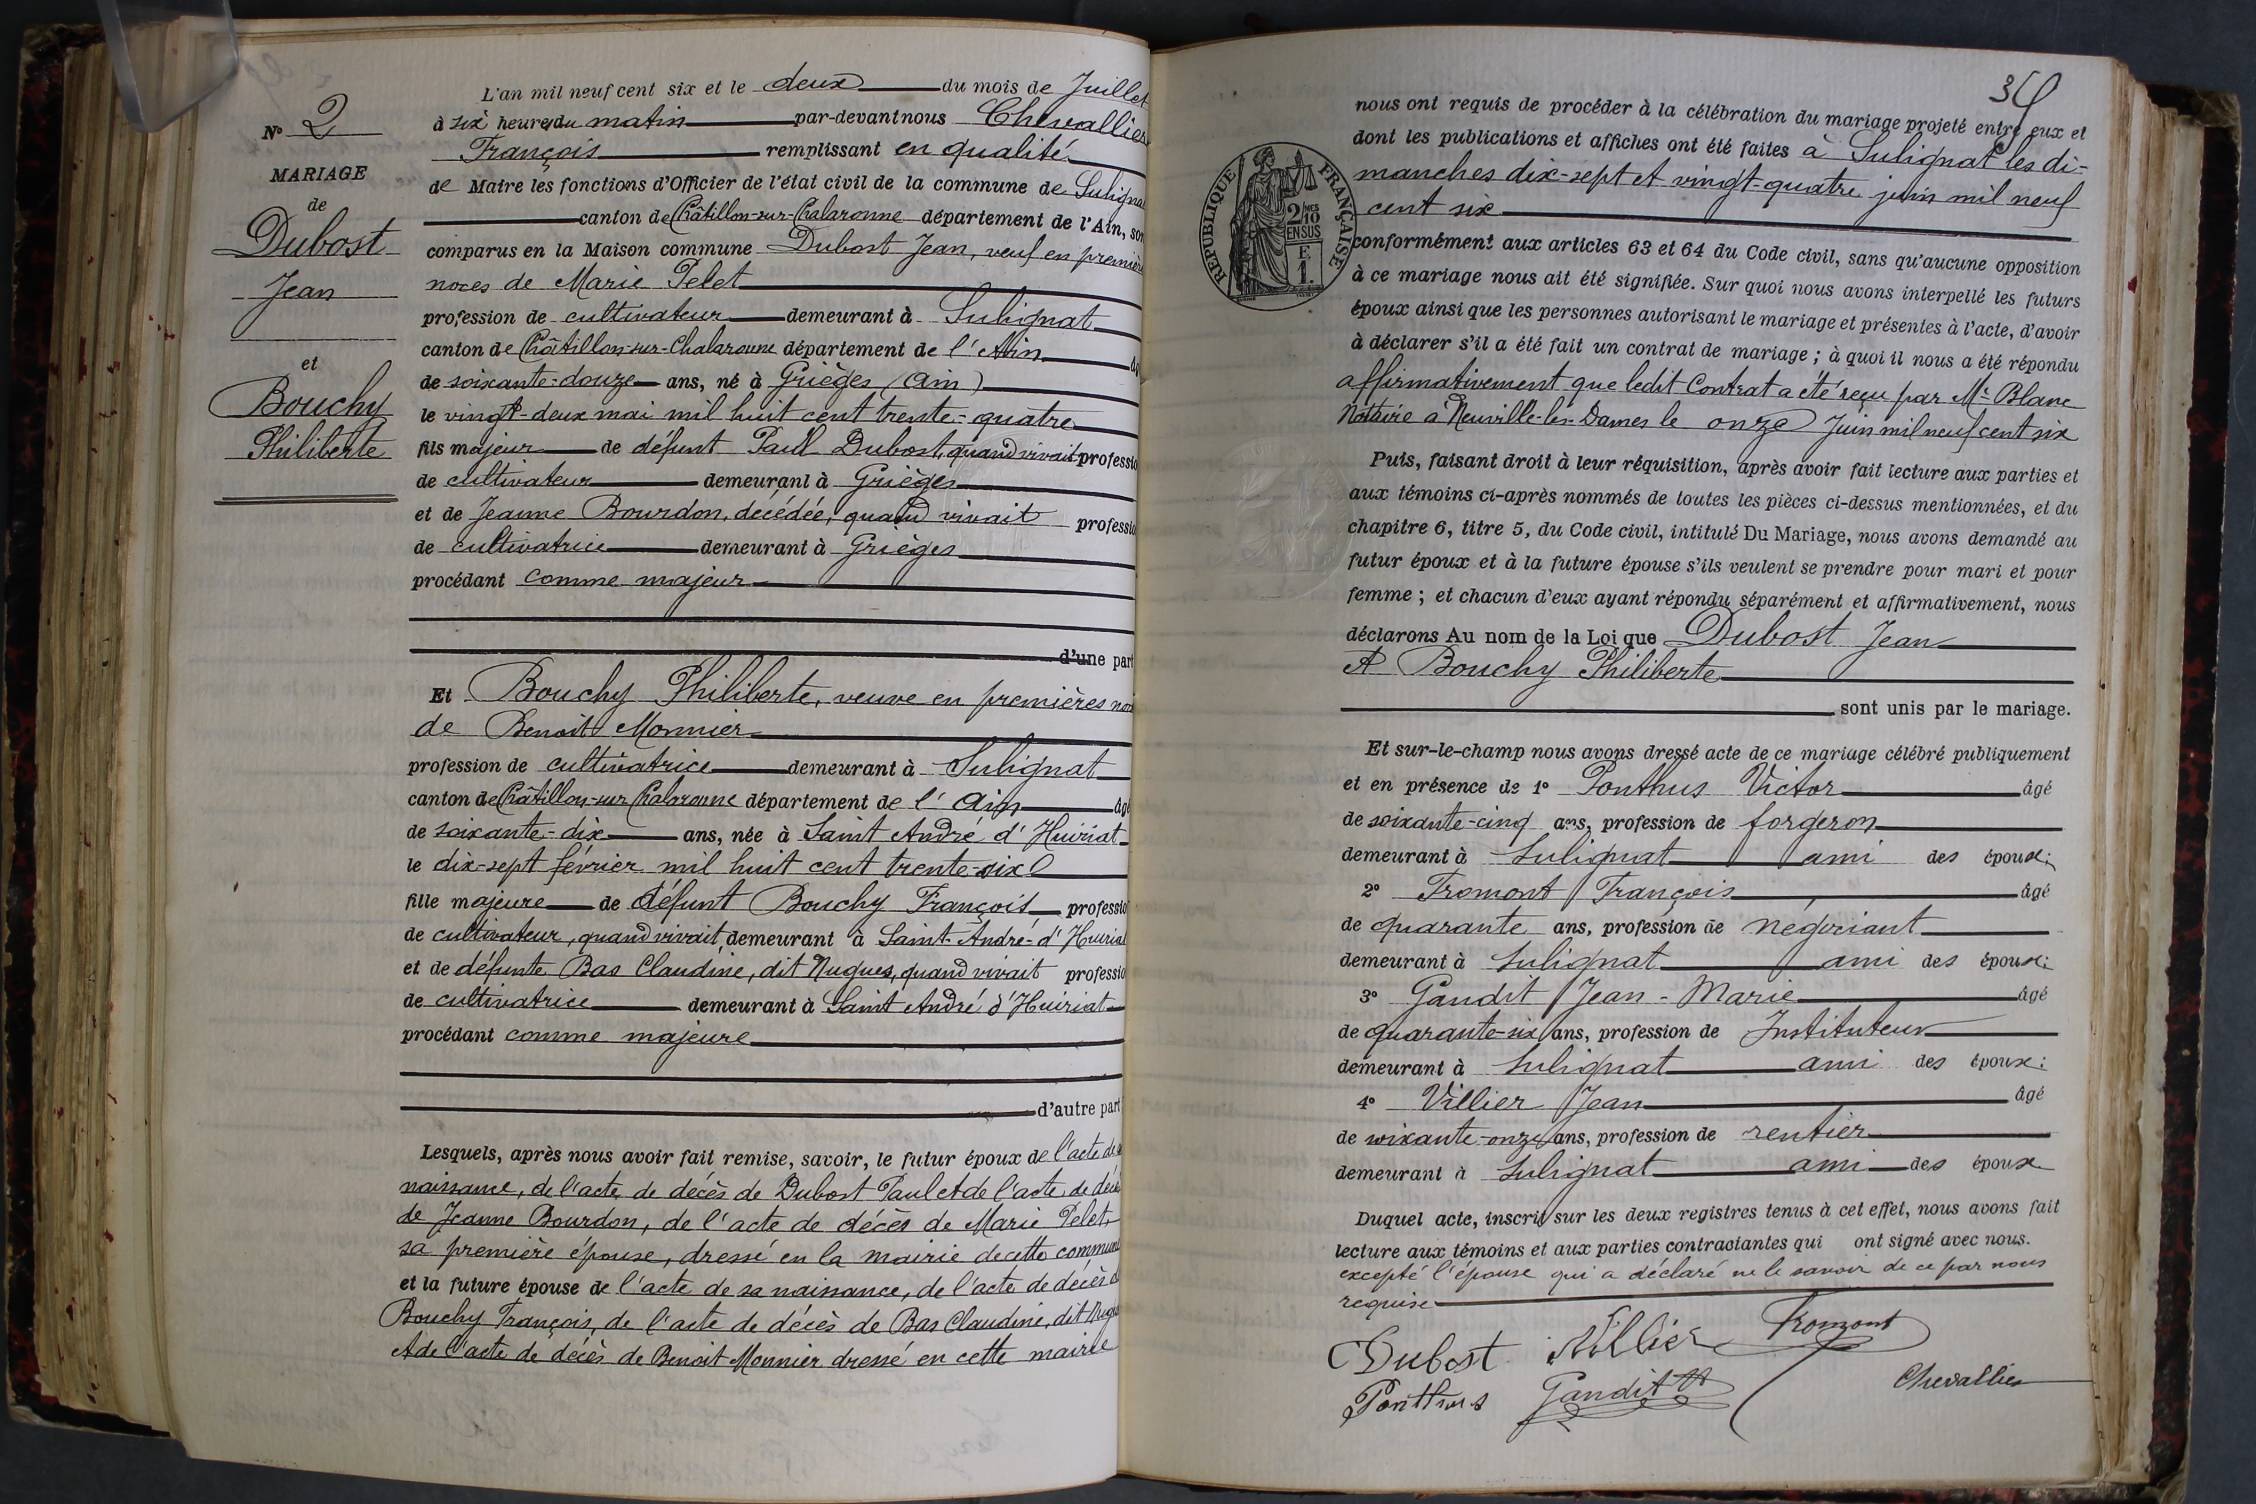 N° 2
MARIAGE
de
Dubost
Jean
et
Bouchy
Philiberte
L'an mil neuf cent six et le deux du mois de Juillet
à six heures du matin par-devant nous Chevallier
François remplissant en qualité
de Maire les fonctions d'Officier de l'état civil de la commune de Sulignat
canton de Châtillon-sur-Chalaronne département de l'Ain, son
comparus en la Maison commune Dubost Jean, veuf en première
noces de Marie Pelet
profession de cultivateur demeurant à Sulignat
canton de Châtillon-sur-Chalaronne département de l'Ain
de soixante-douze ans, né à Grièges (Ain)
le vingt-deux mai mil huit cent trente-quatre
fils majeur de défunt Paul Dubost, quand vivait professio
de cultivateur demeurant à Grièges
et de Jeanne Bourdon, décédée, quand vivait professio
de cultivatrice demeurant à Grièges
procédant comme majeur
d'une part
Et Bouchy Philiberte, veuve en premières noc
de Benoit Monnier
profession de cultivatrice demeurant à Sulignat
canton de Châtillon-sur-Chalaronne département de l'Ain âgé
de soixante-dix ans, née à Saint André d'Huiriat
le dix-sept février mil huit cent trente-six
fille majeure de défunt Bouchy François professio
de cultivateur, quand vivait, demeurant à Saint-André-d'Huiriat
et de défunte Bas Claudine, dit Nugues, quand vivait professio
de cultivatrice demeurant à Saint André d'Huiriat
procédant comme majeure
d'autre part
Lesquels, après nous avoir fait remise, savoir, le futur époux de l'acte de sa
naissance, de l'acte de décès de Dubost Paul et de l'acte de décès
de Jeanne Bourdon, de l'acte de décès de Marie Pelet,
sa première épouse, dressé en la mairie de cette commune
et la future épouse de l'acte de sa naissance, de l'acte de décès de
Bouchy François, de l'acte de décès de Bas Claudine, dit Nugues
et de l'acte de décès de Benoit Monnier dressé en cette mairie
RÉPUBLIQUE FRANÇAISE
2/MES
10
EN SUS
E
1.
nous ont requis de procéder à la célébration du mariage projeté entre eux et
dont les publications et affiches ont été faites à Sulignat les di-
manches dix-sept et vingt-quatre juin mil neuf
cent six
conformément aux articles 63 et 64 du Code civil, sans qu'aucune opposition
à ce mariage nous ait été signifiée. Sur quoi nous avons interpellé les futurs
époux ainsi que les personnes autorisant le mariage et présentes à l'acte, d'avoir
à déclarer s'il a été fait un contrat de mariage ; à quoi il nous a été répondu
affirmativement que ledit Contrat a été reçu par Me Blanc
Notaire à Neuville-les-Dames le onze Juin mil neuf cent six
Puis, faisant droit à leur réquisition, après avoir fait lecture aux parties et
aux témoins ci-après nommés de toutes les pièces ci-dessus mentionnées, et du
chapitre 6, titre 5, du Code civil, intitulé Du Mariage, nous avons demandé au
futur époux et à la future épouse s'ils veulent se prendre pour mari et pour
femme ; et chacun d'eux ayant répondu séparément et affirmativement, nous
déclarons Au nom de la Loi que Dubost Jean
et Bouchy Philiberte
sont unis par le mariage.
Et sur-le-champ nous avons dressé acte de ce mariage célébré publiquement
et en présence de 1° Ponthus Victor âgé
de soixante-cinq ans, profession de forgeron
demeurant à Sulignat ami des époux;
2° Fromont François âgé
de quarante ans, profession de négociant
demeurant à Sulignat ami des époux;
3° Gandit Jean-Marie âgé
de quarante-six ans, profession de Instituteur
demeurant à Sulignat ami des époux;
4° Villier Jean âgé
de soixante-onze ans, profession de rentier
demeurant à Sulignat ami des époux
Duquel acte, inscrit sur les deux registres tenus à cet effet, nous avons fait
lecture aux témoins et aux parties contractantes qui ont signé avec nous.
excepté l'épouse qui a déclaré ne le savoir de ce par nous
requise
Dubost Villier Fromont
Ponthus Gandit Chevallier